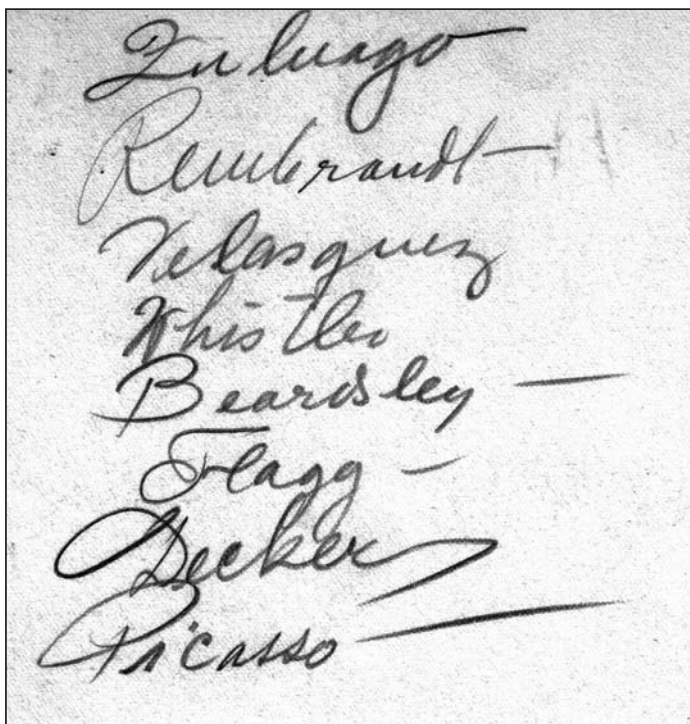 Zuluago
Rembrandt —
Velasquez
Whistler
Beardsley —
Flagg —
Decker
Picasso —